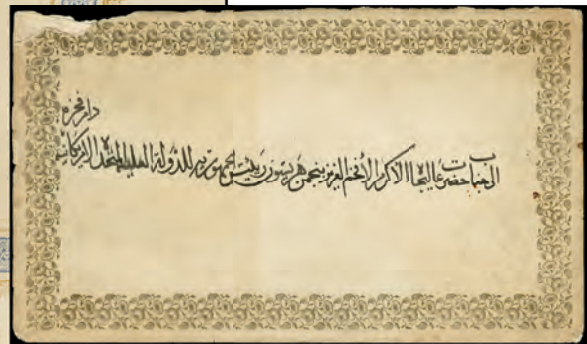 الى جناب حضرت عاليجاه الاكرم الافخم العزيز بنجمن هريسون رئيس الجمهوريه للدولة العلية المتحدة الامريكانيه
دام فخره